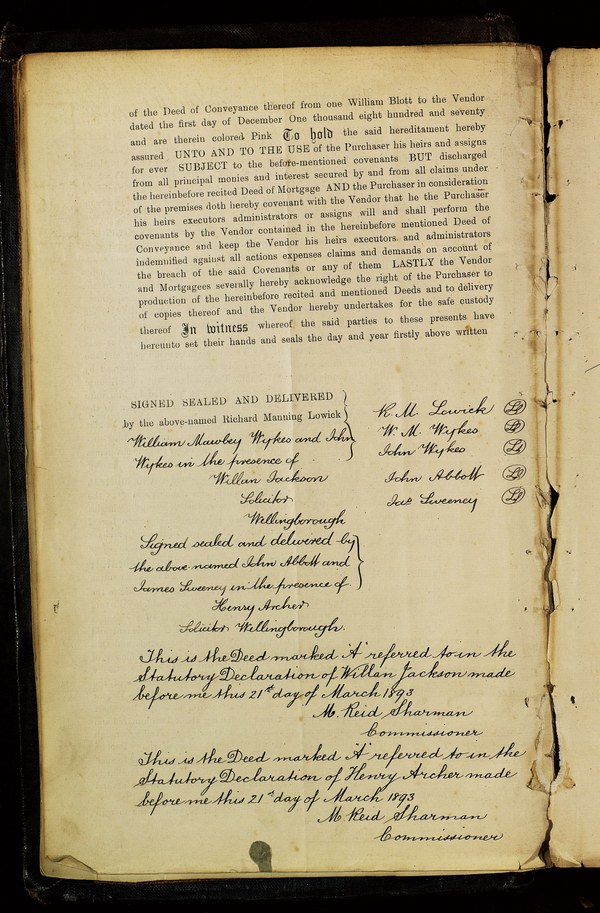 of the Deed of Conveyance thereof from one William Blott to the Vendor
dated the first day of December One thousand eight hundred and seventy
and are therein colored Pink To hold the said hereditament hereby
assured UNTO AND TO THE USE of the Purchaser his heirs and assigns
for ever SUBJECT to the before-mentioned covenants BUT discharged
from all principal monies and interest secured by and from all claims under
the hereinbefore recited Deed of Mortgage AND the Purchaser in consideration
of the premises doth hereby covenant with the Vendor that he the Purchaser
his heirs executors administrators or assigns will and shall perform the
covenants by the Vendor contained in the hereinbefore mentioned Deed of
Conveyance and keep the Vendor his heirs executors and administrators
indemnified against all actions expenses claims and demands on account of
the breach of the said Covenants or any of them LASTLY the Vendor
and Mortgagees severally hereby acknowledge the right of the Purchaser to
production of the hereinbefore recited and mentioned Deeds and to delivery
of copies thereof and the Vendor hereby undertakes for the safe custody
thereof In witness whereof the said parties to these presents have
hereunto set their hands and seals the day and year firstly above written
SIGNED SEALED AND DELIVERED
by the above-named Richard Manning Lowick
William Mawbey Wykes and John
Wykes in the presence of
Willan Jackson
Solicitor
Wellingborough
R. M. Lowick
W. M. Wykes
John Wykes
John Abbott
Jas Sweeney
Signed sealed and delivered by
the above-named John Abbott and
James Sweeney in the presence of
Henry Archer
Solicitor Wellingborough.
This is the Deed marked "A" referred to in the
Statutory Declaration of Willan Jackson made
before me this 21st day of March 1893
M. Reid Sharman
Commissioner
This is the Deed marked "A" referred to in the
Statutory Declaration of Henry Archer made
before me this 21st day of March 1893
M. Reid Sharman
Commissioner